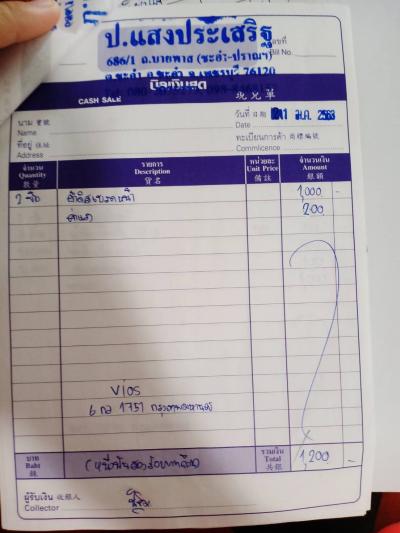 ป.แสงประเสริฐ
686/1 ถ.บายพาส (ชะอำ-ปราณฯ)
ต.ชะอำ อ.ชะอำ จ.เพชรบุรี 76120
เลขที่
Bill No.
บิลเงินสด
CASH SALE
現兑單
นาม 寳號
Name
วันที่ 日期 11 ม.ค. 2563
Date
ที่อยู่ 住址
Address
ทะเบียนการค้า 商標編號
Commlicence
จำนวน รายการ หน่วยละ จำนวนเงิน
Quantity Description Unit Price Amount
數量 貨名 備註 銀額
1,000 -
ค่าแรง 200
VIOS
6 กล 1751 กรุงเทพมหานคร
บาท
Baht
銖
(หนึ่งพันสองร้อยบาทถ้วน)
รวมเงิน
Total
共銀
1,200 -
ผู้รับเงิน 收銀人
Collector